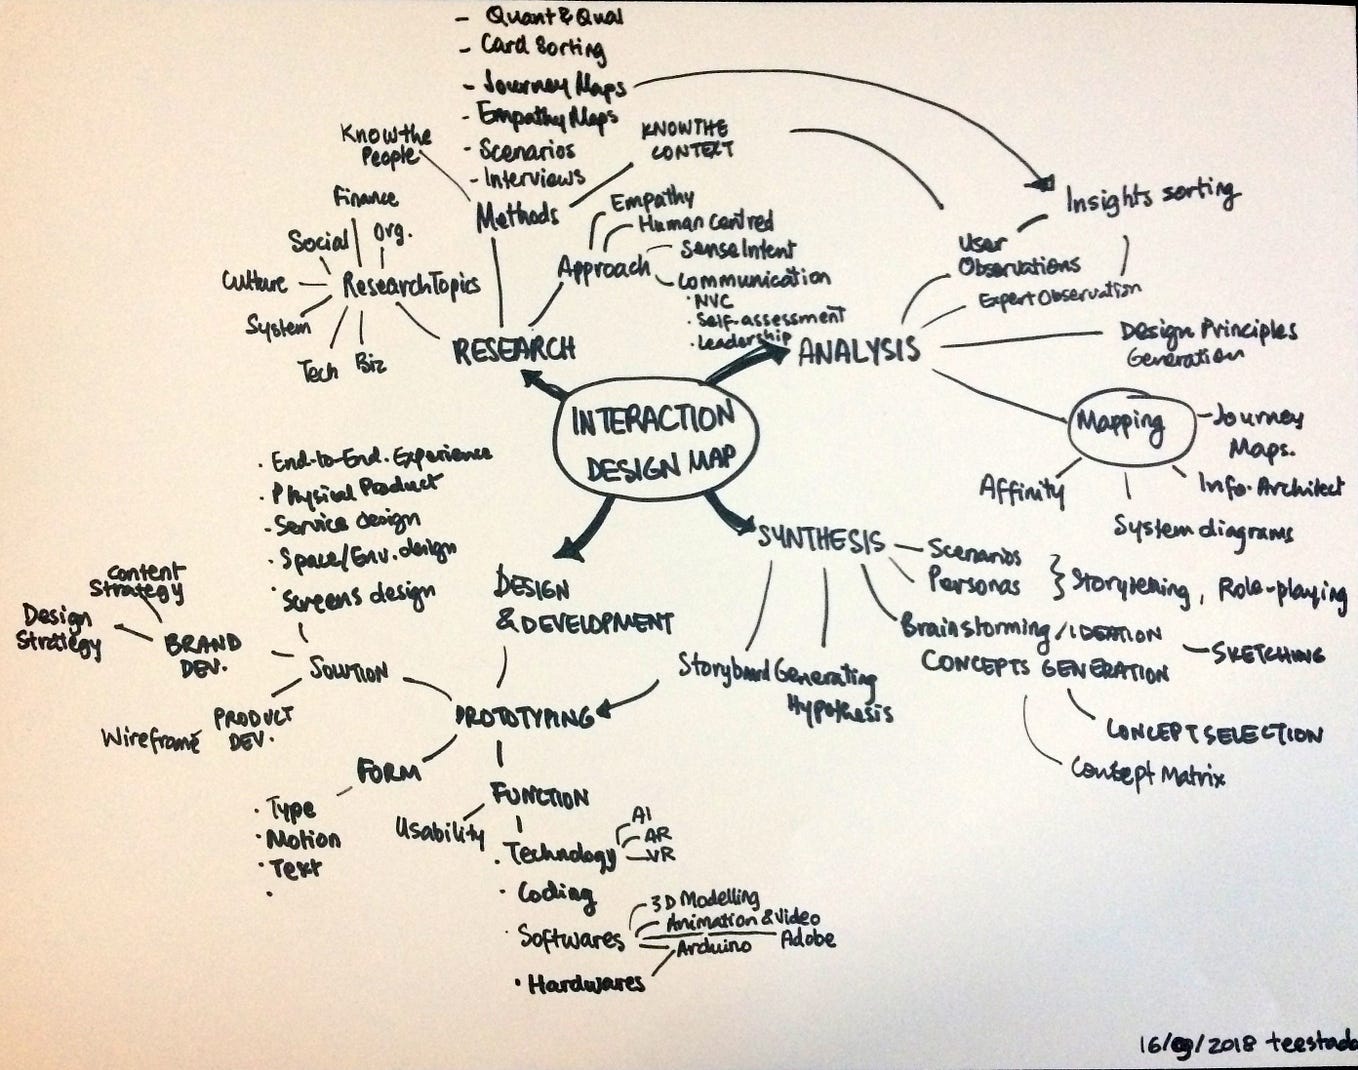 - Quant & Qual
- Card Sorting
- Journey Maps
- Empathy Maps
- Scenarios
- Interviews
Know the
People
KNOW THE
CONTEXT
Methods
Finance
Social
Org.
Culture
Research Topics
System
Tech
Biz
Empathy
Human Centred
Sense Intent
Approach
Communication
· NVC
· Self-assessment
· Leadership
RESEARCH
ANALYSIS
Insights sorting
User
Observations
Expert Observation
Design Principles
Generation
Mapping
Journey
Maps.
Affinity
Info. Architect
System diagrams
INTERACTION
DESIGN MAP
· End-to-End. Experience
· Physical Product
· Service design
· Space/Env. design
· Screens design
SYNTHESIS
Scenarios
Personas
} Storytelling, Role-playing
Brainstorming / IDEATION
CONCEPTS GENERATION
SKETCHING
CONCEPT SELECTION
Concept Matrix
Storyboard
Generating
Hypothesis
DESIGN
& DEVELOPMENT
Content
Strategy
Design
Strategy
BRAND
DEV.
SOLUTION
PRODUCT
DEV.
Wireframe
PROTOTYPING
FORM
· Type
· Motion
· Text
·
FUNCTION
Usability
· Technology
AI
AR
VR
· Coding
· Softwares
3D Modelling
Animation & Video
Adobe
Arduino
· Hardwares
16/09/2018 teestado